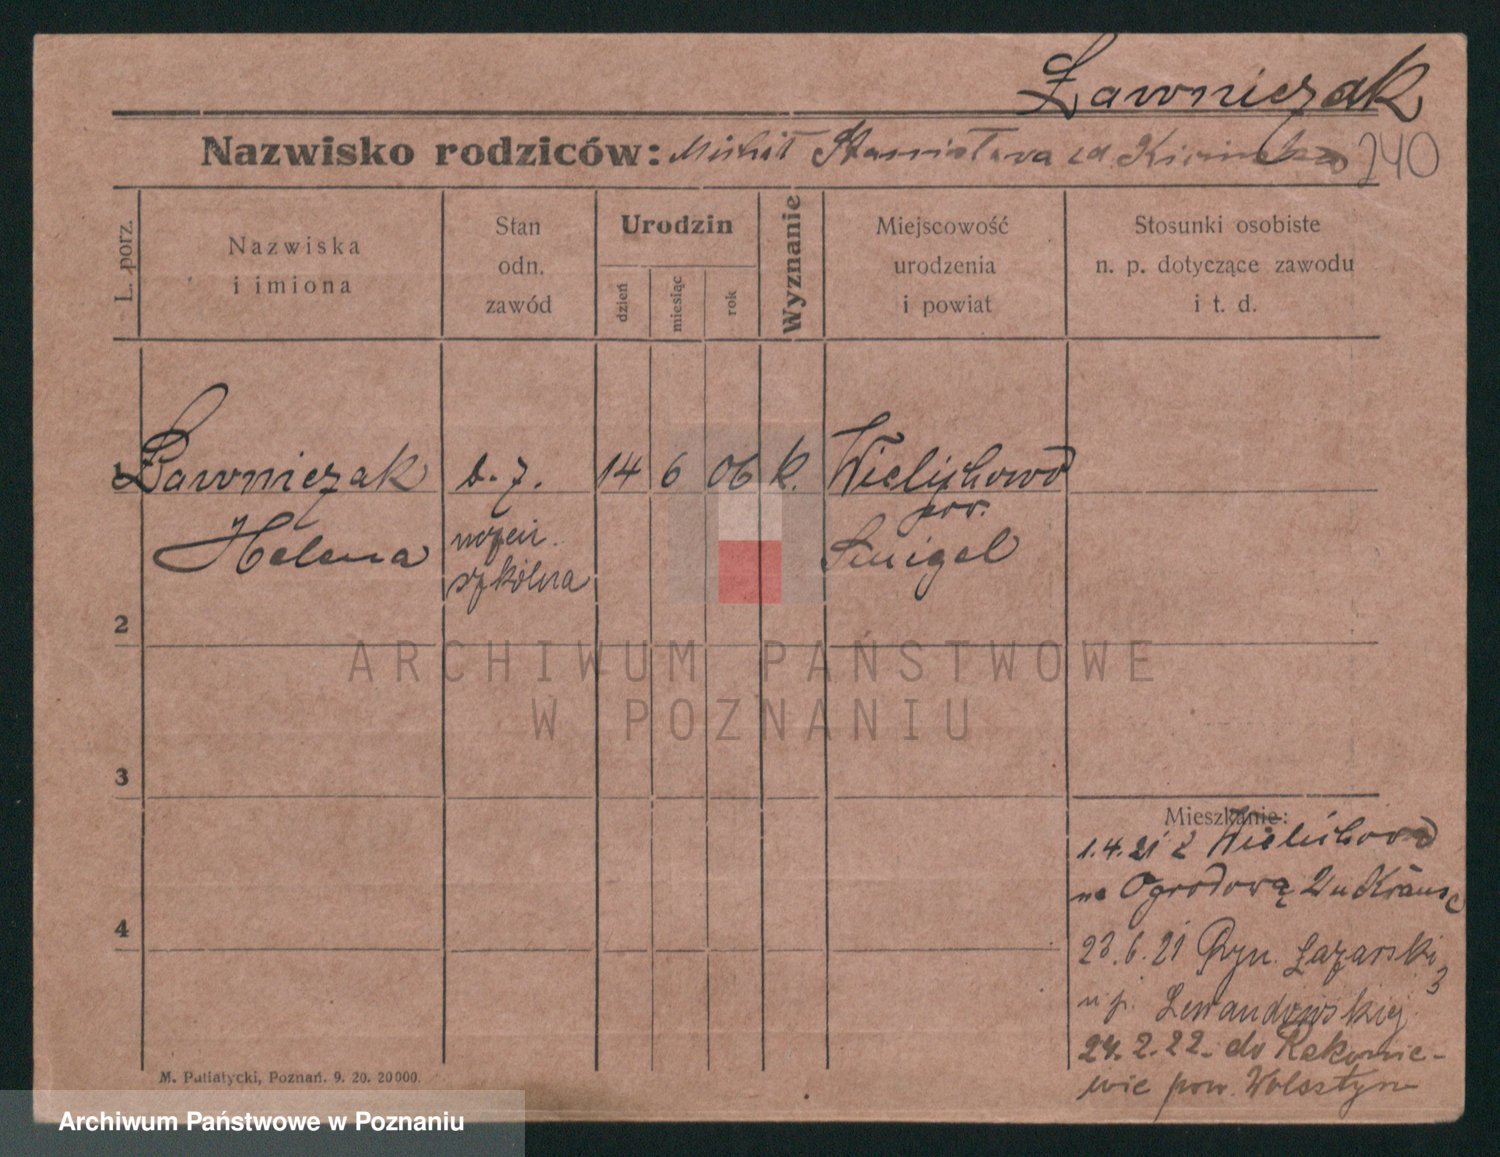 Ławniczak
Nazwisko rodziców: Michał Stanisława zd.
240
L. porz.
Nazwiska
i imiona
Stan
odn.
zawód
Urodzin
dzień
miesiąc
rok
Wyznanie
Miejscowość
urodzenia
i powiat
Stosunki osobiste
n. p. dotyczące zawodu
i t. d.
1 Ławniczak
Helena
b. z.
szkólna
14 6 06 k.
Wielichowo
pow.
Śmigel
2
3
4
Mieszkanie:
1.4.21 z Wielichowa
na Ogrodową 2 u Krause
23.6.21 Ryn. Łazarski 3
u p. Lewandowskiej
24.2.22. do Rakonie-
wic pow. Wolsztyn
M. Putiatycki, Poznań. 9. 20. 20000.
ARCHIWUM PAŃSTWOWE
W POZNANIU
Archiwum Państwowe w Poznaniu